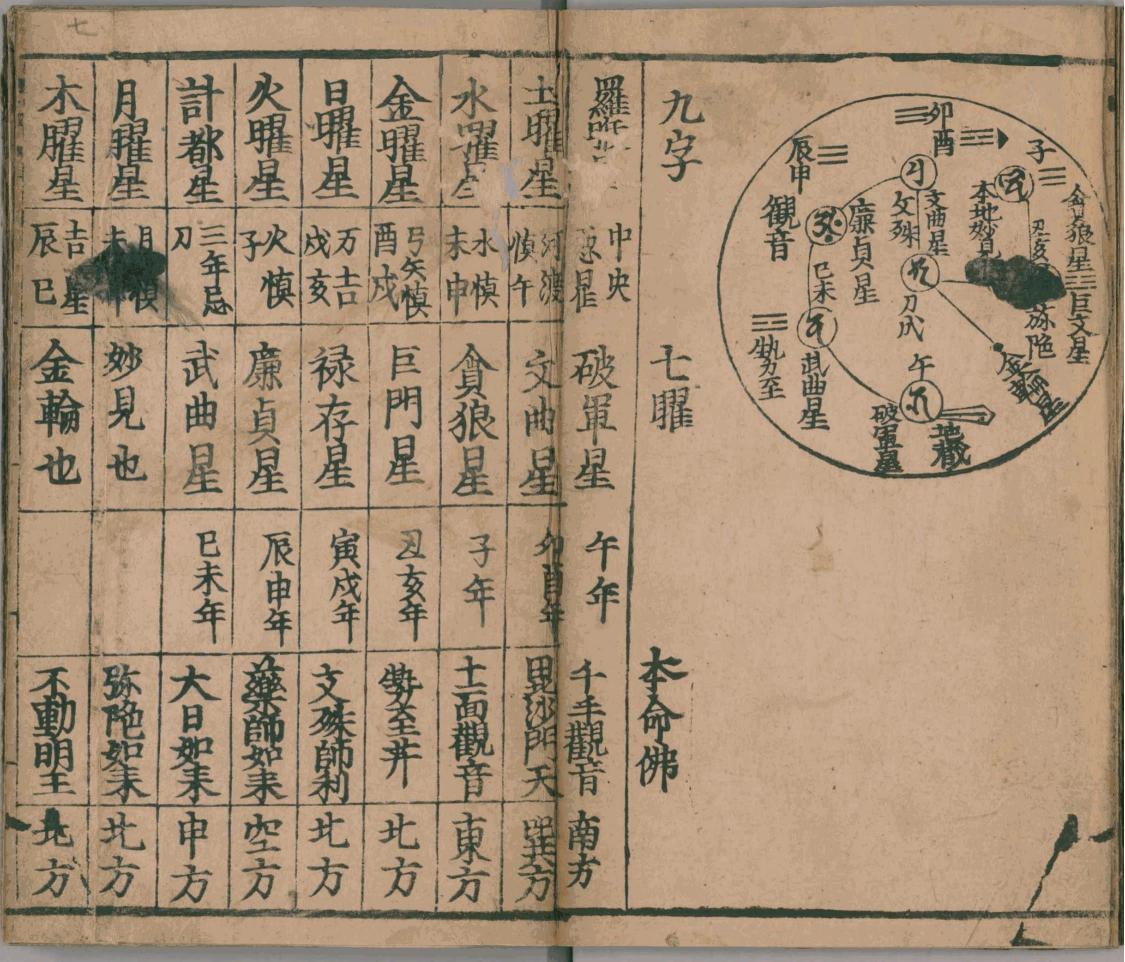 子
本地妙見
貪狼星
丑亥
巨文星
弥陀
金輪星
卯酉
文曲星
文殊
辰申
観音
廉貞星
巳未
武曲星
勢至
午
破軍星
地蔵
九字
七曜
本命佛
中央
破軍星
午年
千手觀音
南方
土曜星
慎午
文曲星
卯酉年
毘沙門天
巽方
水曜星
水慎
未申
貪狼星
子年
十一面觀音
東方
金曜星
弓矢慎
酉戌
巨門星
丑亥年
勢至井
北方
日曜星
万吉
戌亥
禄存星
寅戌年
文殊師利
北方
火曜星
火慎
子
廉貞星
辰申年
藥師如来
空方
計都星
三年忌
刀
武曲星
巳未年
大日如来
中方
月曜星
妙見也
弥陀如来
北方
木曜星
吉星
辰巳
金輪也
不動明王
北方
七